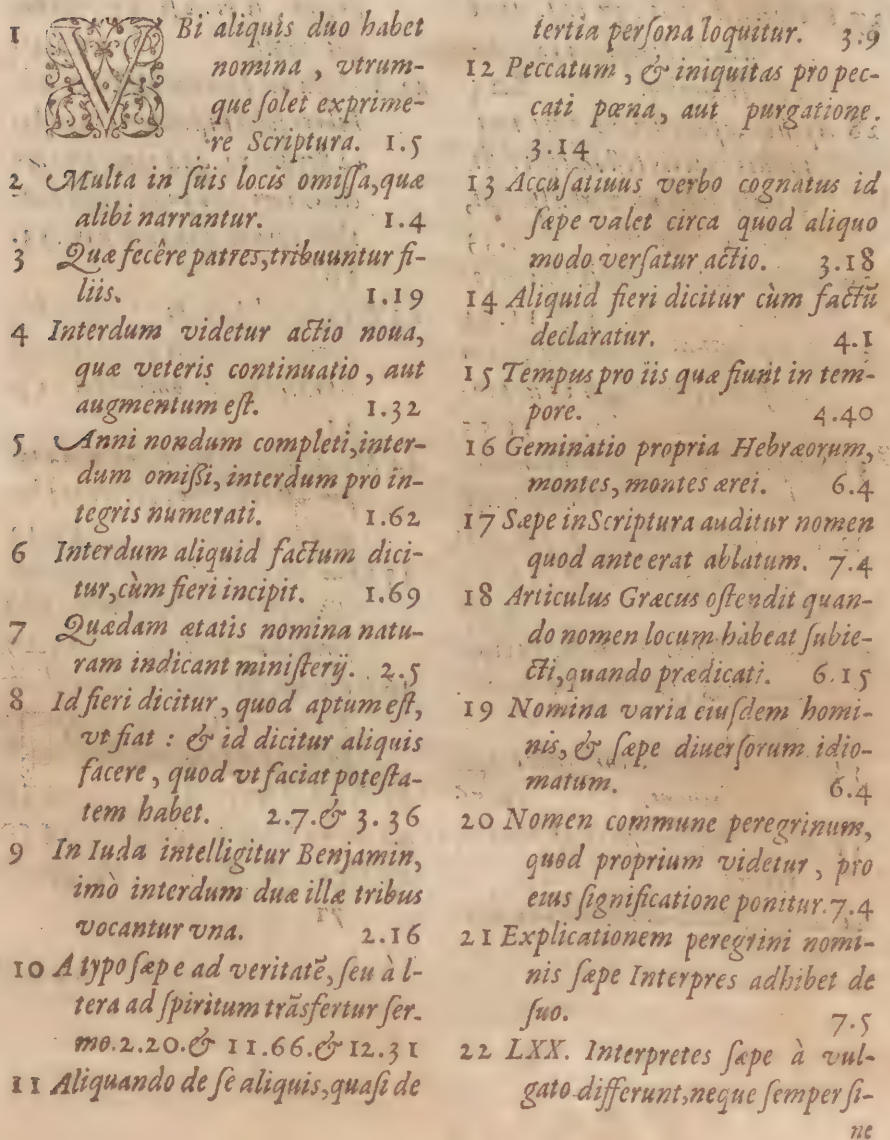 1 VBi aliquis duo habet
nomina, vtrum-
que ſolet exprime-
re Scriptura. 1.5
2 Multa in ſuis locis omiſſa, quæ
alibi narrantur. 1.4
3 Quæ fecêre patres, tribuuntur fi-
liis. 1.19
4 Interdum videtur actio noua,
quæ veteris continuatio, aut
augmentum eſt. 1.32
5 Anni nondum completi, inter-
dum omiſſi, interdum pro in-
tegris numerati. 1.62
6 Interdum aliquid factum dici-
tur, cùm fieri incipit. 1.69
7 Quædam ætatis nomina natu-
ram indicant miniſterij. 2.5
8 Id fieri dicitur, quod aptum eſt,
vt fiat : & id dicitur aliquis
facere, quod vt faciat poteſta-
tem habet. 2.7. & 3.36
9 In Iuda intelligitur Benjamin,
imò interdum duæ illæ tribus
vocantur vna. 2.16
10 A typo ſæpe ad veritatẽ, ſeu à l-
tera ad ſpiritum trãsfertur ſer-
mo. 2.20. & 11.66. & 12.31
11 Aliquando de ſe aliquis, quaſi de
tertia perſona loquitur. 3.9
12 Peccatum, & iniquitas pro pec-
cati pœna, aut purgatione.
3.14
13 Accuſatiuus verbo cognatus id
ſæpe valet circa quod aliquo
modo verſatur actio. 3.18
14 Aliquid fieri dicitur cùm factũ
declaratur. 4.1
15 Tempus pro iis quæ fiunt in tem-
pore. 4.40
16 Geminatio propria Hebræorum,
montes, montes ærei. 6.4
17 Sæpe in Scriptura auditur nomen
quod ante erat ablatum. 7.4
18 Articulus Græcus oſtendit quan-
do nomen locum habeat ſubie-
cti, quando prædicati. 6.15
19 Nomina varia eiuſdem homi-
nis, & ſæpe diuerſorum idio-
matum. 6.4
20 Nomen commune peregrinum,
quod proprium videtur, pro
eius ſignificatione ponitur. 7.4
21 Explicationem peregrini nomi-
nis ſæpe Interpres adhibet de
ſuo. 7.5
22 LXX. Interpretes ſæpe à vul-
gato differunt, neque ſemper ſi-
ne